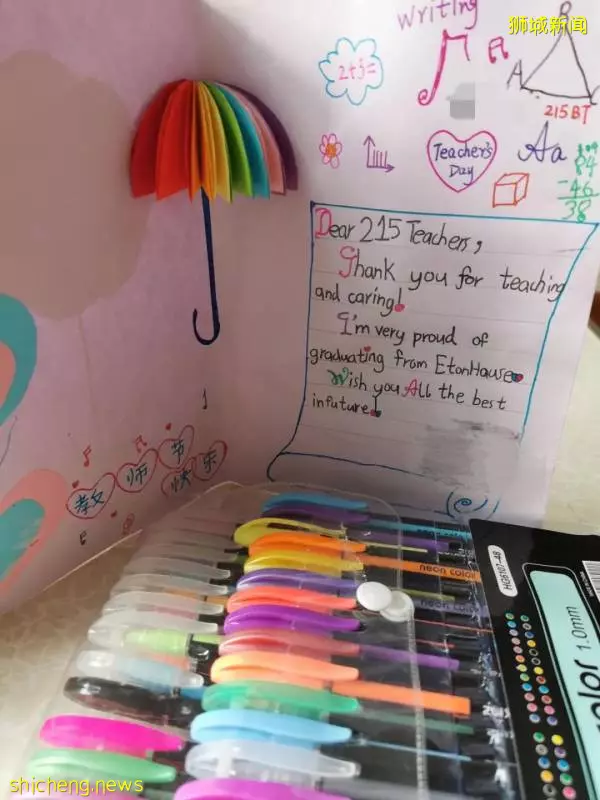 writing
狮城新闻
B
2+3=
A
215BT
Teacher's
Day
Aa
84
-46
38
Dear 215 Teachers,
Thank you for teaching
and caring!
I'm very proud of
graduating from EtonHause
Wish you All the best
in future!
教 师 节
快 乐
neon color
neon color
HG6107-48
color 1.0mm
shicheng.news